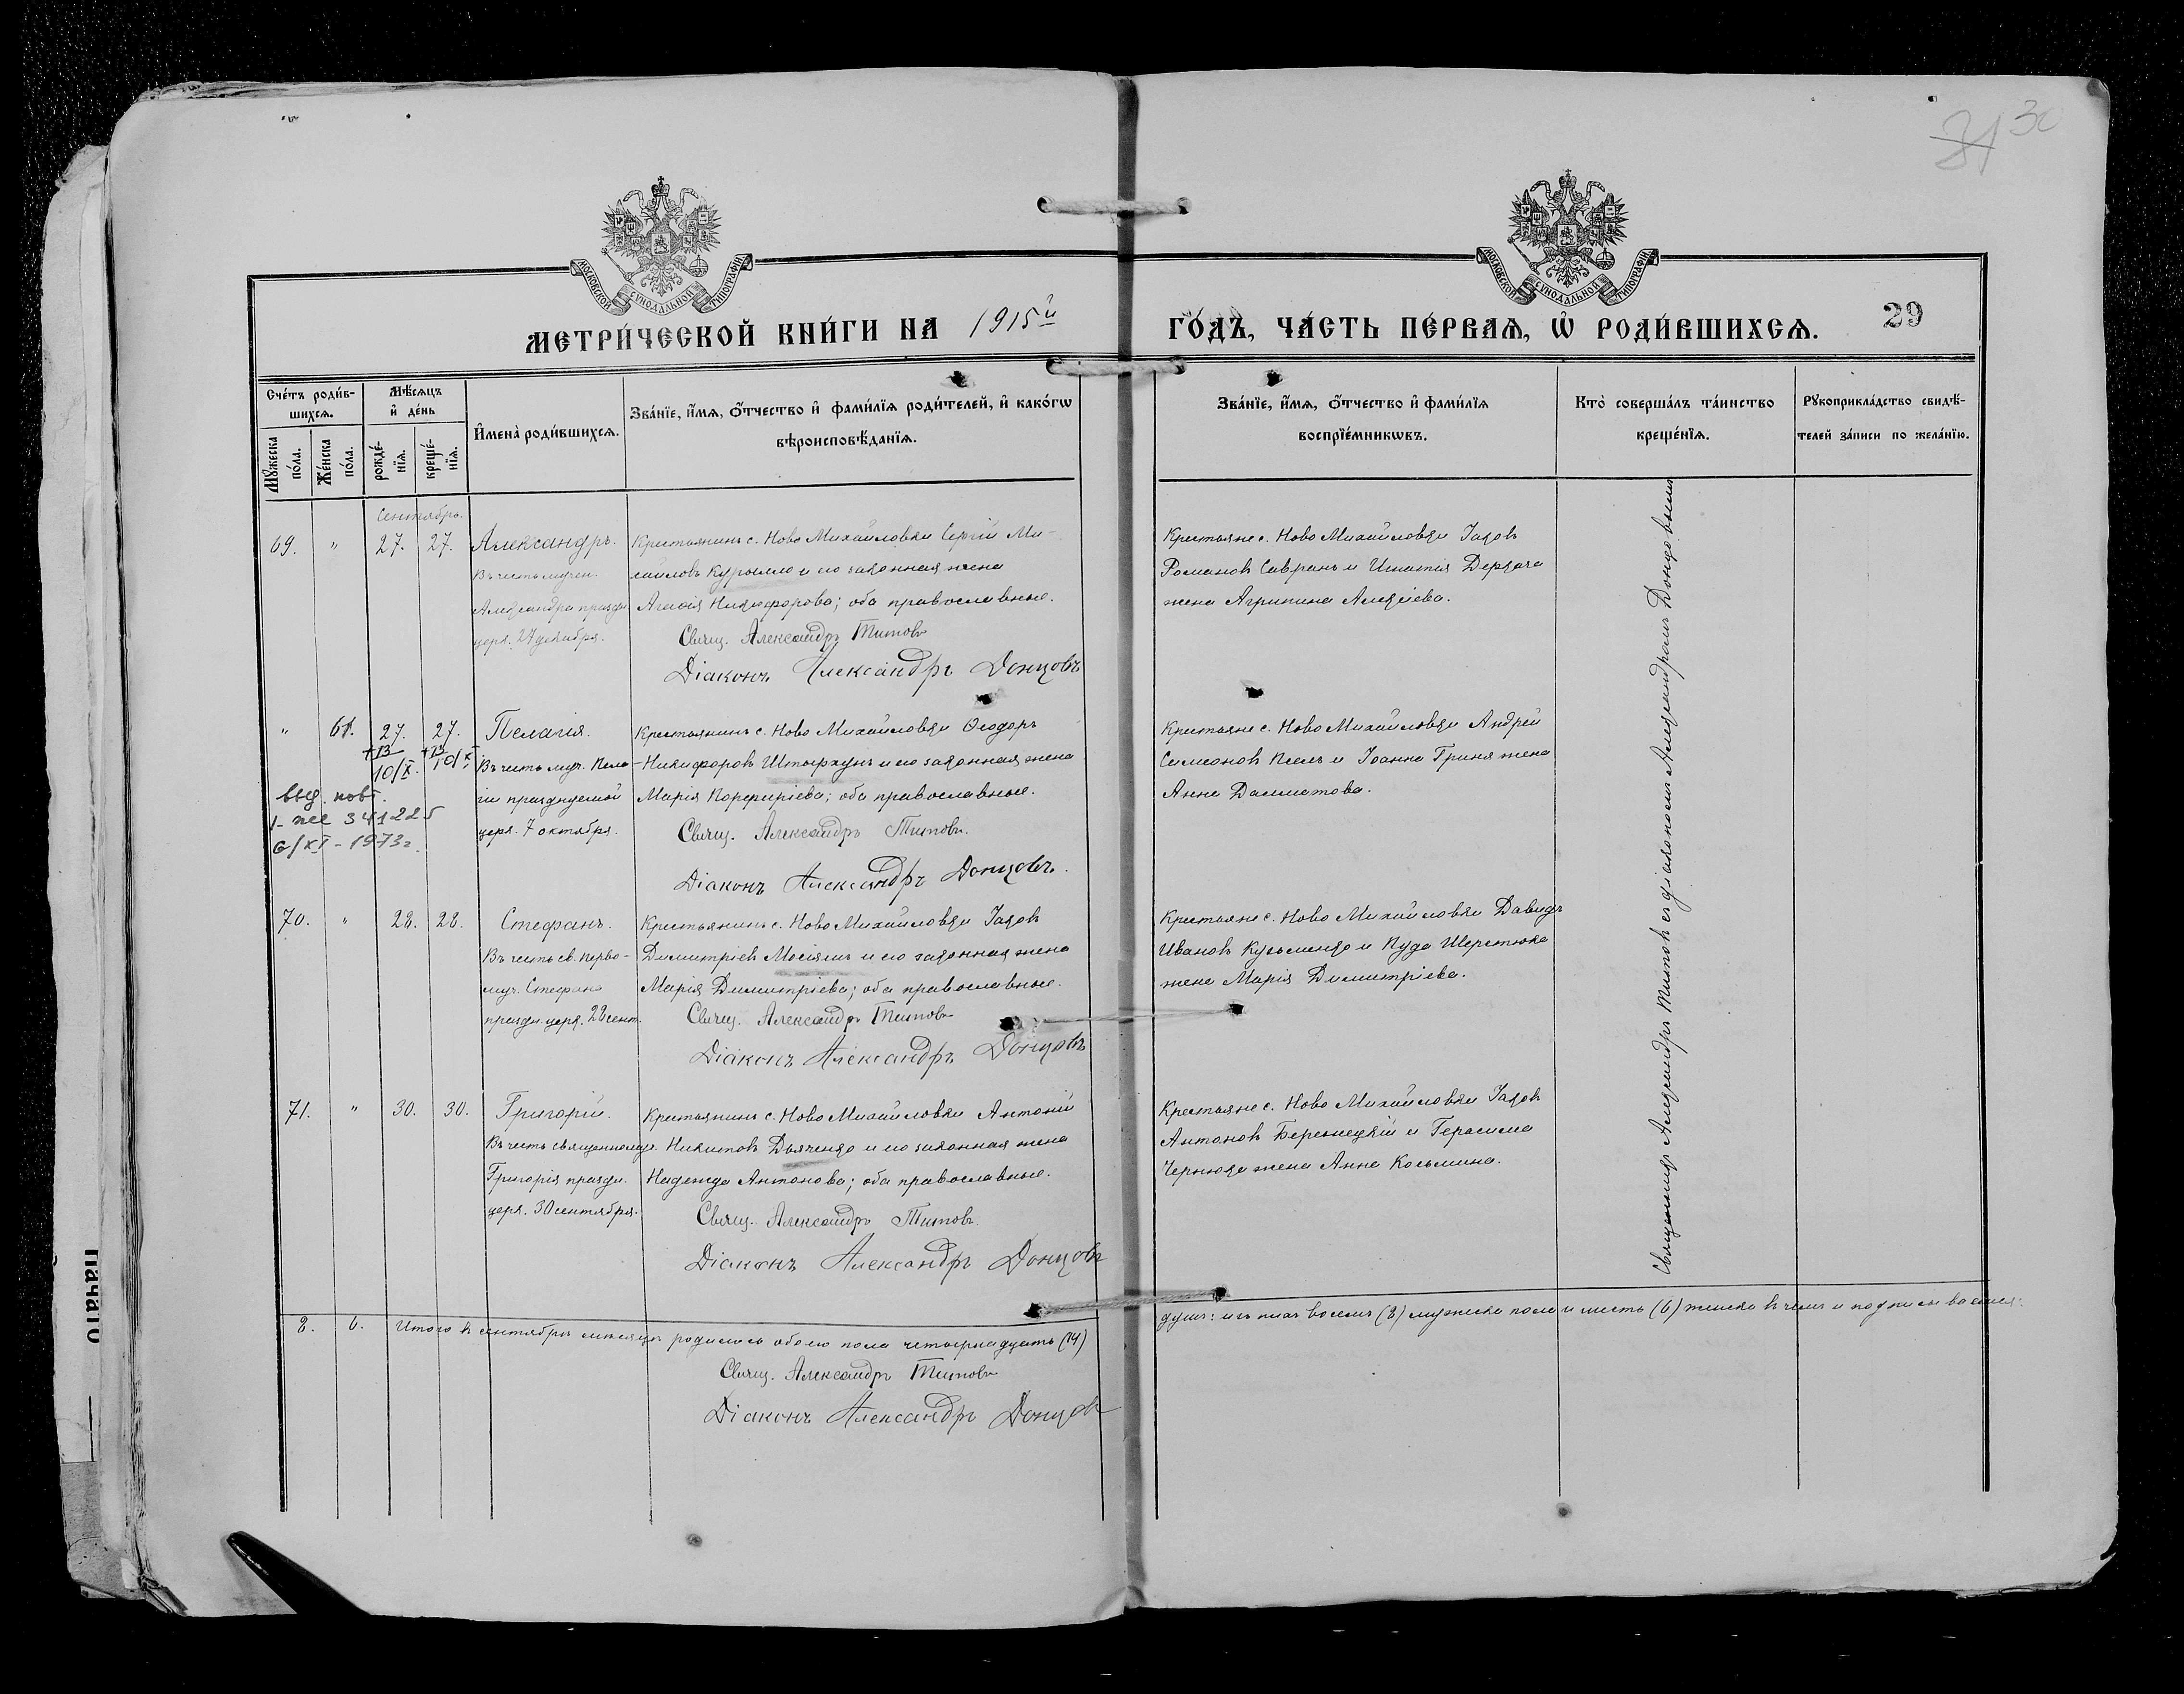 31 30
МОСКОВСКОЙ СѴНОДАЛЬНОЙ ТИПОГРАФІИ
МОСКОВСКОЙ СѴНОДАЛЬНОЙ ТИПОГРАФІИ
МЕТРИ́ЧЕСКОЙ КНИ́ГИ НА 1915й ГО́ДЪ, ЧА́СТЬ ПЕ́РВАѦ, Ѡ҆ РОДИ́ВШИХСѦ. 29
Сче́тъ роди́в-
шихсѧ.
Мꙋ́жеска по́ла.
Же́нска по́ла.
Мѣ́сѧцъ
и҆ де́нь
рожде́-
нїѧ.
креще́-
нїѧ.
И҆мена̀ роди́вшихсѧ.
Зва́нїе, и҆́мѧ, ѻ҆́тчество и҆ фами́лїѧ роди́телей, и҆ како́гѡ
вѣроисповѣ́данїѧ.
Зва́нїе, и҆́мѧ, ѻ҆́тчество и҆ фами́лїѧ
воспрїе́мникѡвъ.
Кто̀ соверша́лъ та́инство
креще́нїѧ.
Рꙋкоприкла́дство свидѣ́-
телей за́писи по жела́нїю.
Сентябрь.
69. " 27. 27. Александръ.
Въ честь мучен.
Александра праздн.
церк. 27 декабря.
Крестьянинъ с. Ново Михайловки Сергій Ми-
хайловъ Курылло и его законная жена
Агафія Никифорова; оба православные.
Свящ. Александръ Титовъ
Діаконъ Александръ Донцовъ
Крестьяне с. Ново Михайловки Іаковъ
Романовъ Савранъ и Игнатія Деркача
жена Агрипина Алексіева.
" 61. 27. 27. Пелагія.
+13 +13
10/X. 10/X.
Въ честь муч. Пела-
гіи празднуемой
церк. 7 октября.
выд. повт.
341225
6/XI - 1973г.
Крестьянинъ с. Ново Михайловки Ѳеодоръ
Никифоровъ Штырхунъ и его законная жена
Марія Порфиріева; оба православные.
Свящ. Александръ Титовъ.
Діаконъ Александръ Донцовъ.
Крестьяне с. Ново Михайловки Андрей
Симеоновъ Псёлъ и Іоанна Гриня жена
Анна Далматова.
70. " 28. 28. Стефанъ.
Въ честь св. перво-
муч. Стефана
праздн. церк. 28 сент.
Крестьянинъ с. Ново Михайловки Іаковъ
Димитріевъ Мосіяшъ и его законная жена
Марія Димитріева; оба православные.
Свящ. Александръ Титовъ
Діаконъ Александръ Донцовъ
Крестьяне с. Ново Михайловки Давидъ
Ивановъ Кузьменко и Пуда Шерстюка
жена Марія Димитріева.
71. " 30. 30. Григорій.
Въ честь священномуч.
Григорія праздн.
церк. 30 сентября.
Крестьянинъ с. Ново Михайловки Антоній
Никитовъ Дьяченко и его законная жена
Надежда Антонова; оба православные.
Свящ. Александръ Титовъ.
Діаконъ Александръ Донцовъ
Крестьяне с. Ново Михайловки Іаковъ
Антоновъ Бережецкій и Герасима
Чернюка жена Анна Козьмина.
Священникъ Александръ Титовъ съ діакономъ Александромъ Донцовымъ
8. 6. Итого въ сентябрѣ мѣсяцѣ родилось обоего пола четырнадцать (14) душъ: изъ нихъ восемь (8) мужеска пола и шесть (6) женска въ чемъ и подписываемся:
Свящ. Александръ Титовъ
Діаконъ Александръ Донцовъ
Начато